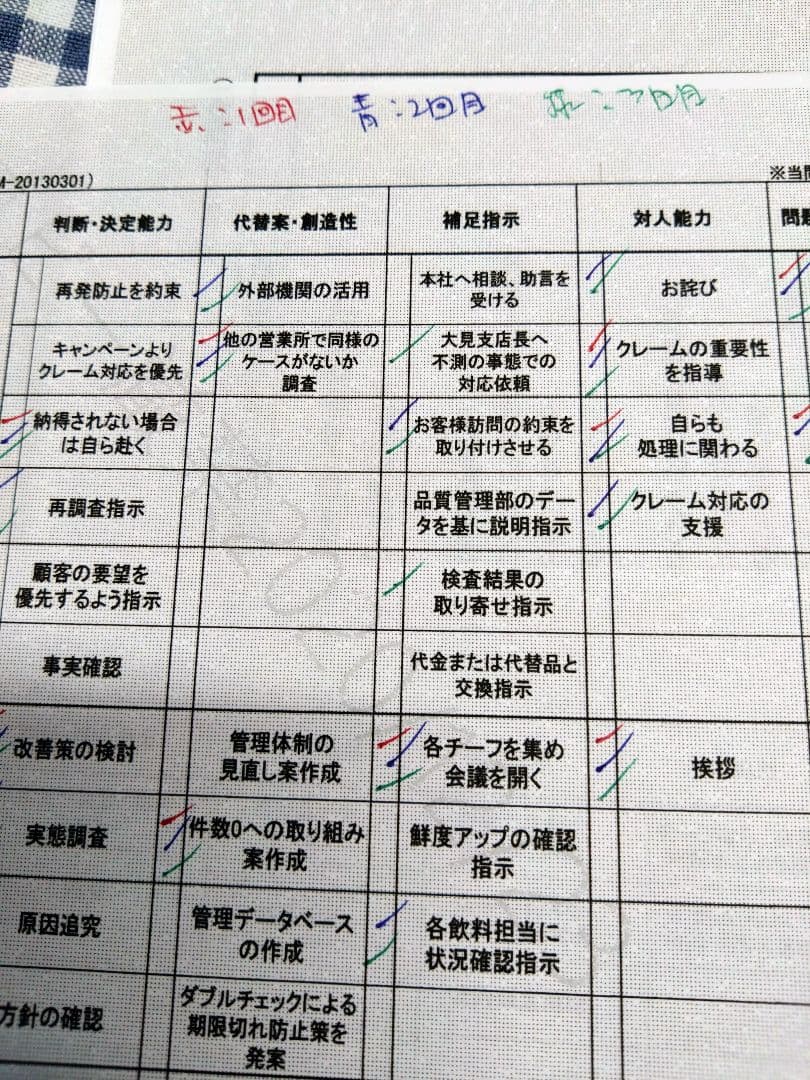 赤:1回目 青:2回目 緑:3回目
M-20130301)
※当問
判断・決定能力 代替案・創造性 補足指示 対人能力 問題
再発防止を約束
外部機関の活用
本社へ相談、助言を
受ける
お詫び
キャンペーンより
クレーム対応を優先
他の営業所で同様の
ケースがないか
調査
大見支店長へ
不測の事態での
対応依頼
クレームの重要性
を指導
納得されない場合
は自ら赴く
お客様訪問の約束を
取り付けさせる
自らも
処理に関わる
再調査指示
品質管理部のデー
タを基に説明指示
クレーム対応の
支援
顧客の要望を
優先するよう指示
検査結果の
取り寄せ指示
事実確認
代金または代替品と
交換指示
改善策の検討
管理体制の
見直し案作成
各チーフを集め
会議を開く
挨拶
実態調査
件数0への取り組み
案作成
鮮度アップの確認
指示
原因追究
管理データベース
の作成
各飲料担当に
状況確認指示
方針の確認
ダブルチェックによる
期限切れ防止策を
発案